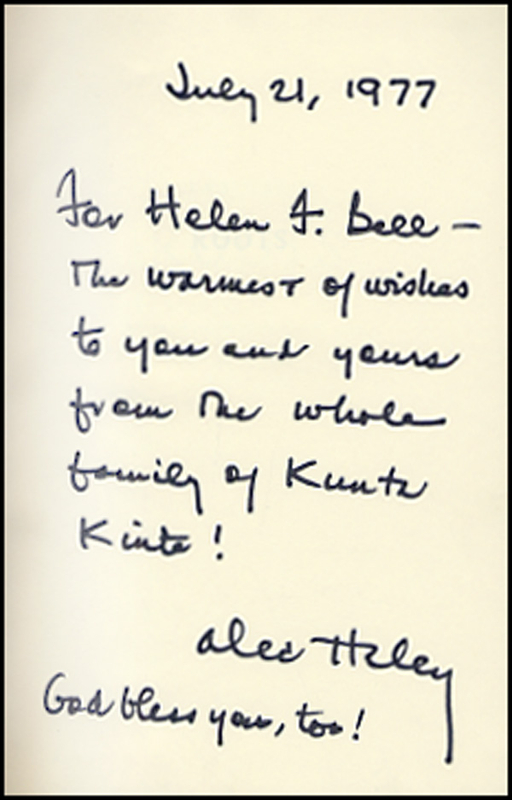 July 21, 1977
For Helen F. Bell —
The warmest of wishes
to you and yours
from the whole
family of Kunta
Kinte!
Alex Haley
God bless you, too!